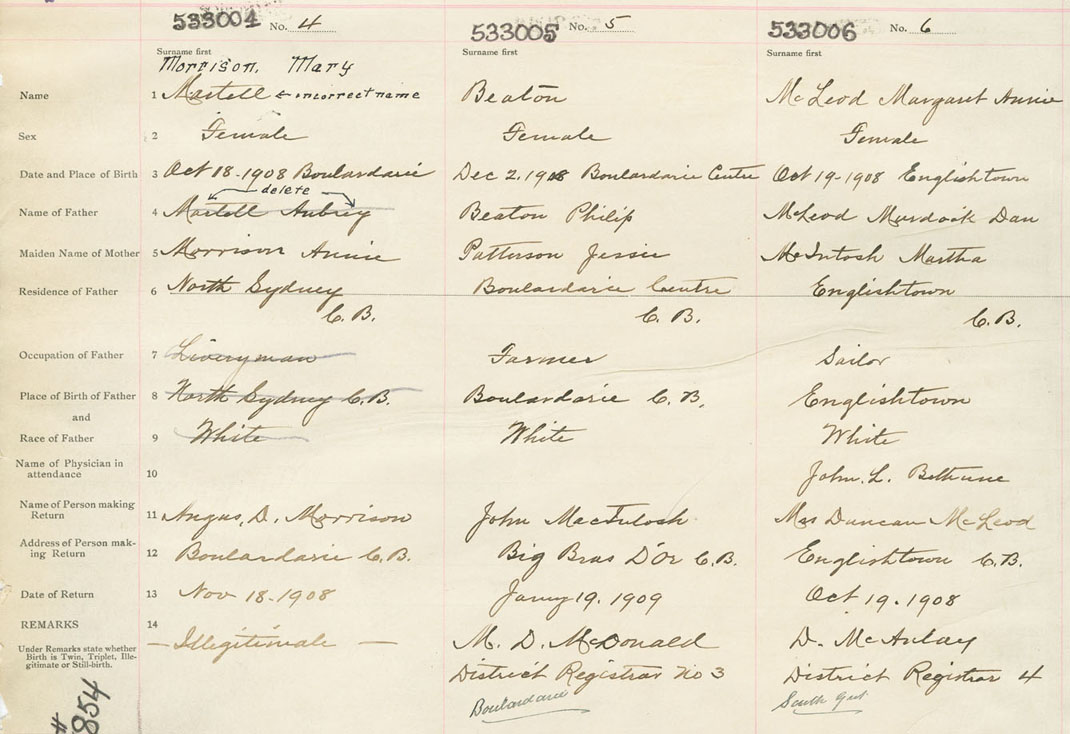 533004 No. 4 533005 No. 5 533006 No. 6
Surname first Surname first Surname first
Morrison, Mary
Name 1 Martell ← incorrect name Beaton McLeod Margaret Annie
Sex 2 Female Female Female
Date and Place of Birth 3 Oct 18-1908 Boulardarie Dec 2, 1908 Boulardarie Centre Oct 19-1908 Englishtown
delete
Name of Father 4 Martell Aubrey Beaton Philip McLeod Murdock Dan
Maiden Name of Mother 5 Morrison Annie Patterson Jessie McIntosh Martha
Residence of Father 6 North Sydney Boulardarie Centre Englishtown
C.B. C.B. C.B.
Occupation of Father 7 Liveryman Farmer Sailor
Place of Birth of Father 8 North Sydney C.B. Boulardarie C.B. Englishtown
and
Race of Father 9 White White White
Name of Physician in
attendance 10 John. L. Bethune
Name of Person making
Return 11 Angus, D. Morrison John MacIntosh Mrs Duncan McLeod
Address of Person mak-
ing Return 12 Boulardarie C.B. Big Bras D'Or C.B. Englishtown C.B.
Date of Return 13 Nov 18-1908 Jany 19. 1909 Oct 19. 1908
REMARKS 14
Under Remarks state whether
Birth is Twin, Triplet, Ille-
gitimate or Still-birth.
— Illegitimate — M. D. McDonald D. McAulay
District Registrar No 3 District Registrar 4
Boulardarie South Gut
#854